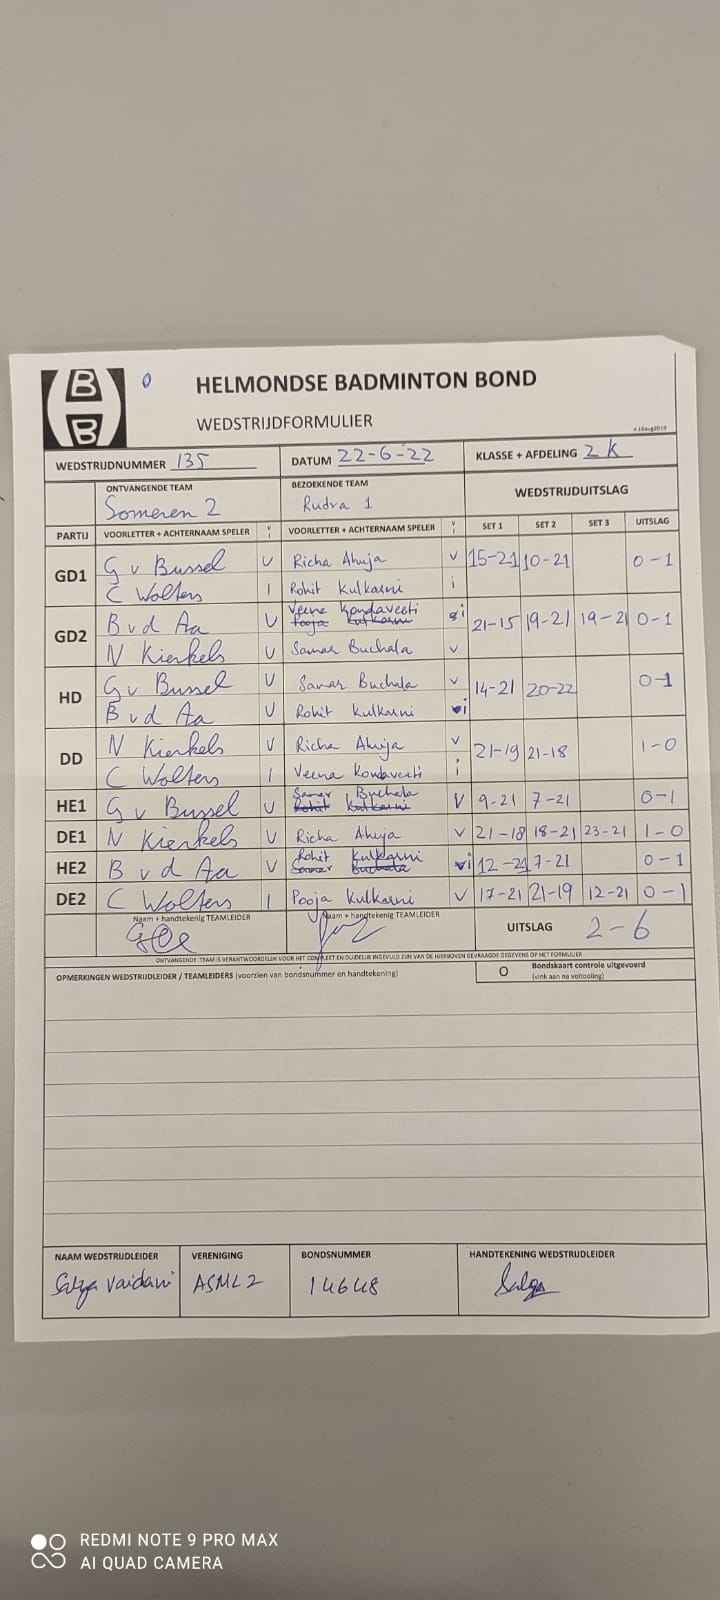 B
B
0
HELMONDSE BADMINTON BOND
WEDSTRIJDFORMULIER
WEDSTRIJDNUMMER 135 DATUM 22-6-22 KLASSE + AFDELING 2 K
ONTVANGENDE TEAM BEZOEKENDE TEAM WEDSTRIJDUITSLAG
Someren 2 Rudra 1
PARTIJ VOORLETTER + ACHTERNAAM SPELER V I VOORLETTER + ACHTERNAAM SPELER V I SET 1 SET 2 SET 3 UITSLAG
GD1 G v Bussel V Richa Ahuja V 15-21 10-21 0-1
C Wolters I Rohit Kulkarni i
Veena Kondaveeti
GD2 B v d Aa V Pooja Kulkarni i 21-15 19-21 19-21 0-1
N Kierkels V Samar Buchala V
HD G v Bussel V Samar Buchala V 14-21 20-22 0-1
B v d Aa V Rohit Kulkarni i
DD N Kierkels V Richa Ahuja V 21-19 21-18 1-0
C Wolters I Veena Kondaveeti i
Samar Buchala
HE1 G v Bussel V Rohit Kulkarni V 9-21 7-21 0-1
DE1 N Kierkels V Richa Ahuja V 21-18 18-21 23-21 1-0
Rohit Kulkarni
HE2 B v d Aa V Samar Buchala i 12-21 7-21 0-1
DE2 C Wolters I Pooja Kulkarni V 17-21 21-19 12-21 0-1
Naam + handtekenig TEAMLEIDER Naam + handtekenig TEAMLEIDER UITSLAG 2-6
ONTVANGENDE TEAM IS VERANTWOORDELIJK VOOR HET COMPLEET EN DUIDELIJK INGEVULD ZIJN VAN DE HIERBOVEN GEVRAAGDE GEGEVENS OP HET FORMULIER
OPMERKINGEN WEDSTRIJDLEIDER / TEAMLEIDERS (voorzien van bondsnummer en handtekening) O Bondskaart controle uitgevoerd
(vink aan na voltooiing)
NAAM WEDSTRIJDLEIDER VERENIGING BONDSNUMMER HANDTEKENING WEDSTRIJDLEIDER
Vaidani ASML 2 14648
REDMI NOTE 9 PRO MAX
AI QUAD CAMERA